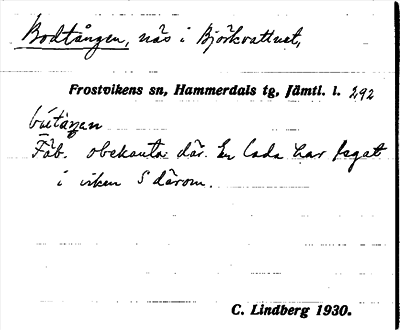 Bodtången, näs i Björkvattnet,
Frostvikens sn, Hammerdals tg, Jämtl. l. 292
Fäb. obekanta där. En lada har legat
i viken S därom.
C. Lindberg 1930.